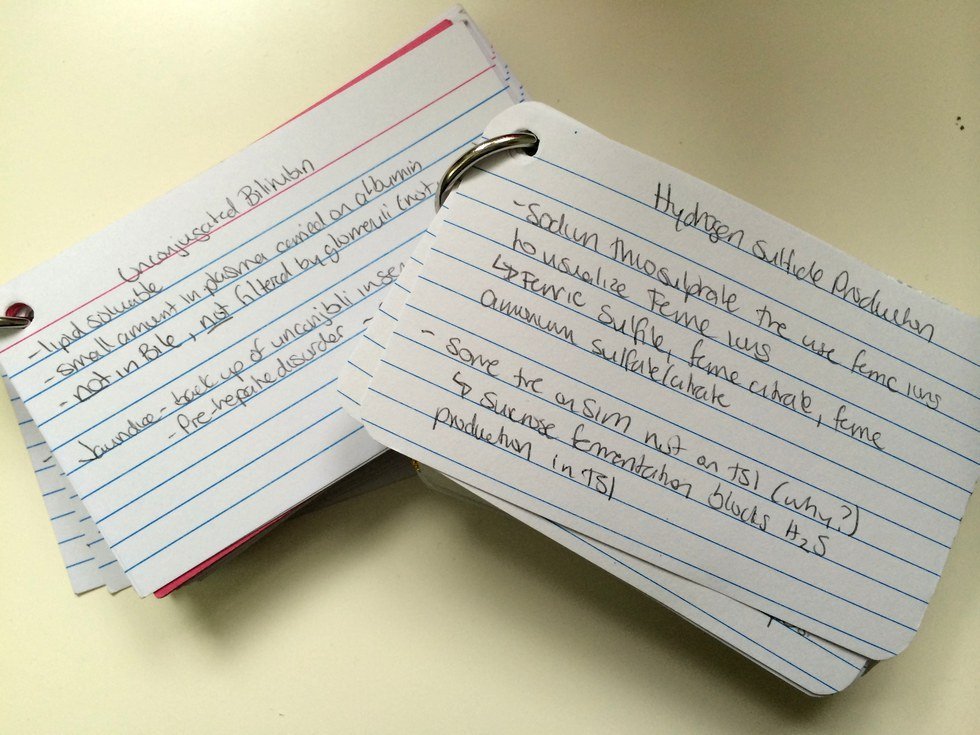 Unconjugated Bilirubin
- lipid soluable
- small amount in plasma carried on albumin
- not in Bile, not filtered by glomeruli (not
Jaundice - back up of unconj bili in ser
- Pre-hepatic disorder
Hydrogen Sulfide Production
- Sodium thiosulphate +ve use ferric ions
to visualize Ferric ions
↳ Ferric Sulfide, ferric citrate, ferric
ammonium sulfate/citrate
- Some +ve on SIM not on TSI (why?)
↳ Sucrose fermentation blocks H₂S
production in TSI